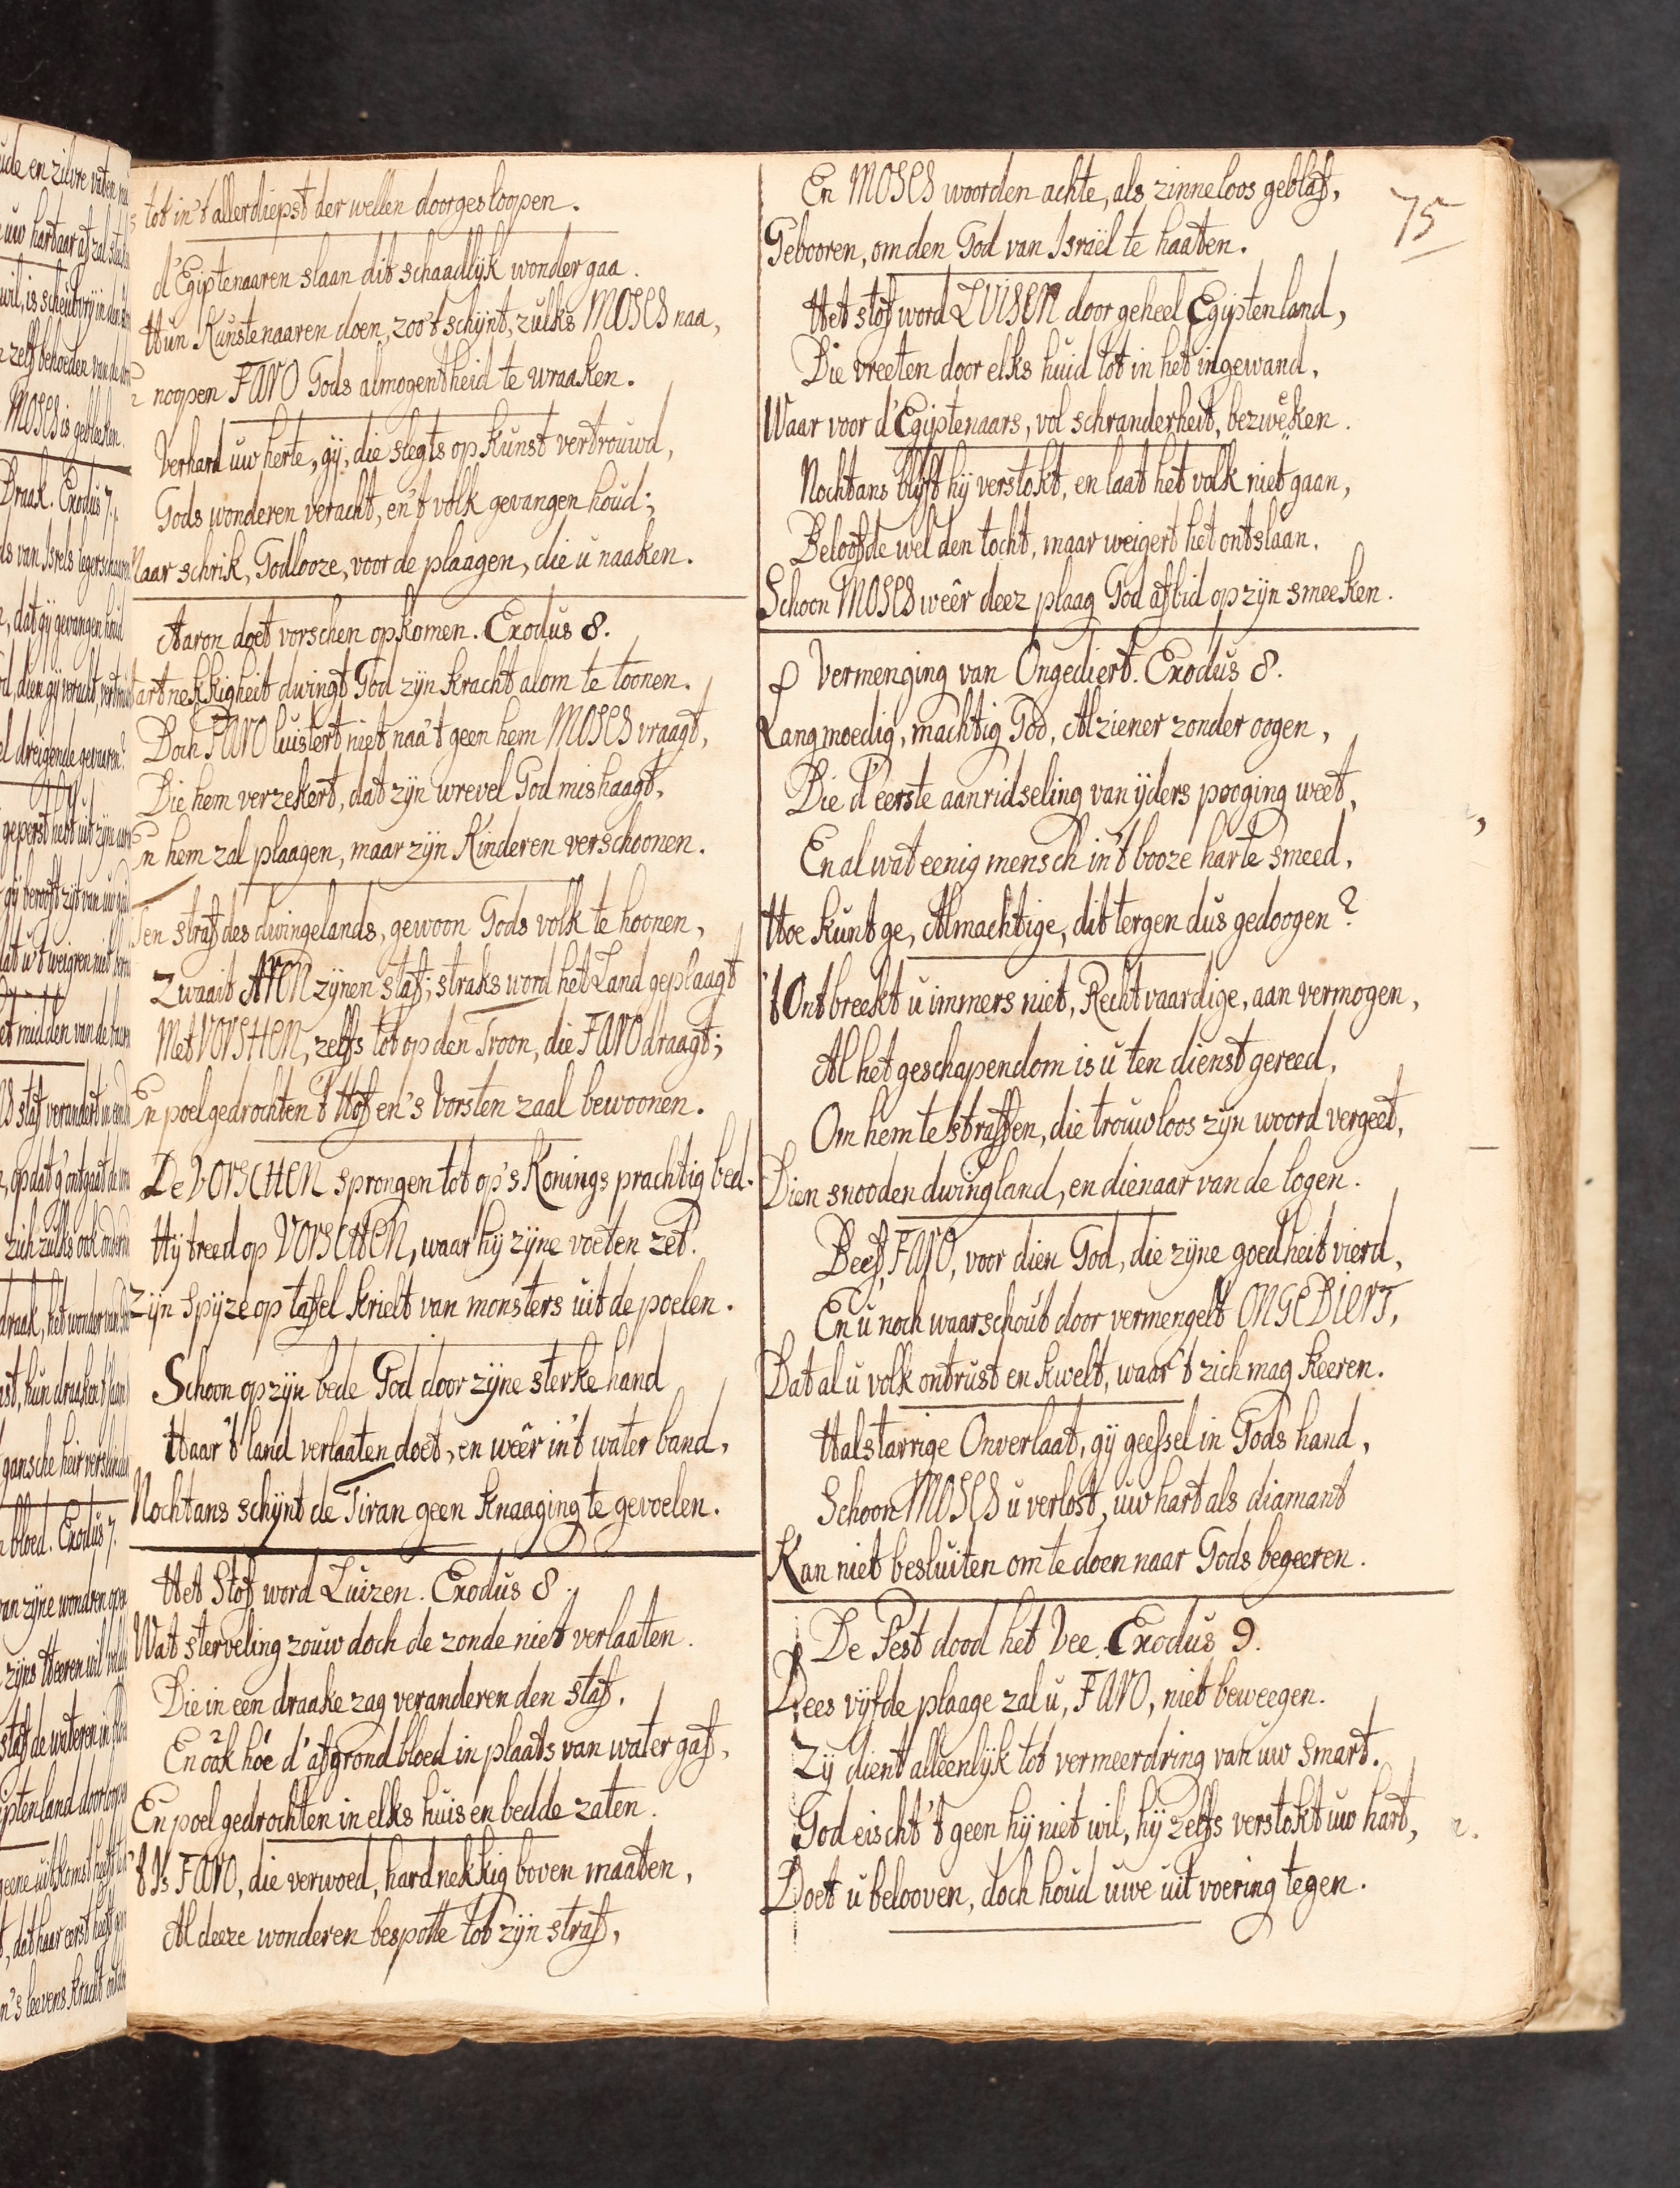 tot in't allerdiepst der wellen doorgesloopen.
d'Egiptenaaren slaan dit schaadlyk wonder gaa.
Hun Kunstenaaren doen, zoo't schijnt, zulks MOSES naa,
noopen FARO Gods almogentheid te wraaken.
Verhard uw herte, gij, die slegts op kunst vertrouwd,
Gods wonderen veracht, en't volk gevangen houd;
Maar schrik, Godlooze, voor de plaagen, die u naaken.
Aaron doet vorschen opkomen. Exodus 8.
artnekkigheit dwingt God zyn kracht alom te toonen.
Doch FARO luistert niet naa't geen hem MOSES vraagt,
Die hem verzekert, dat zyn wrevel God mishaagt,
En hem zal plaagen, maar zyn Kinderen verschoonen.
Ten straf des dwingelands, gewoon Gods volk te hoonen,
Zwaait ARON zynen staf; straks word het Land geplaagt
Met VORSHEN, zelfs tot op den Troon, die FARO draagt;
En poelgedrochten 't Hof en's Vorsten zaal bewoonen.
De VORSCHEN sprongen tot op's Konings prachtig bed.
Hij treed op VORSCHEN, waar hij zijne voeten zet.
Zijn Spijze op taffel krielt van monsters uit de poelen.
Schoon op zijn bede God door zijne sterke hand
Haar't land verlaaten doet, en weêr in't water band,
Nochtans schijnt de Tiran geen knaaging te gevoelen.
Het Stof word Luizen. Exodus 8.
Wat sterveling zouw doch de zonde niet verlaaten.
Die in een draake zag veranderen den staf,
En oôk hoe d'afgrond bloed in plaats van water gaf,
En poel gedrochten in elks huis en bedde zaten.
't Is FARO, die verwoed, hardnekkig boven maaten,
Al deeze wonderen bespotte tot zijn straf,
En MOSES woorden achte, als zinneloos geblaf,
Gebooren, om den God van Israël te haaten.
Het stof word LUISEN door geheel Egijptenland,
Die vreeten door elks huid tot in het ingewand,
Waar voor d'Egijptenaars, vol schranderheit, bezweken.
Nochtans blyft hij verstokt, en laat het volk niet gaan,
Beloofde wel den tocht, maar weigert het ontslaan.
Schoon MOSES weêr deez plaag God afbid op zijn smeeken.
Vermenging van Ongediert. Exodus 8.
Langmoedig, machtig God, Alziener zonder oogen,
Die d'eerste aanridseling van ijders pooging weet,
En al wat eenig mensch in't booze harte smeed,
Hoe kunt ge, Almachtige, dit tergen dus gedoogen?
't Ontbreekt u immers niet, Rechtvaardige, aan vermogen,
Al het geschapendom is u ten dienst gereed,
Om hem te straffen, die trouwloos zijn woord vergeet,
Dien snooden dwingland, en dienaar van de logen.
Beef, FARO, voor dien God, die zijne goedheit vierd,
En u noch waarschout door vermengelt ONGEDIERT,
Dat al u volk ontrust en kwelt, waar't zich mag keeren.
Halstarrige Onverlaat, gij geessel in Gods hand,
Schoon MOSES u verlost, uw hart als diamant
Kan niet besluiten om te doen naar Gods begeeren.
De Pest dood het Vee. Exodus 9.
Dees vijfde plaage zal u, FARO, niet beweegen.
Zij dient alleenlijk tot vermeerdring van uw smart.
God eischt 't geen hij niet wil, hij zelfs verstokt uw hart,
Doet u belooven, doch houd uwe uitvoering tegen.
75